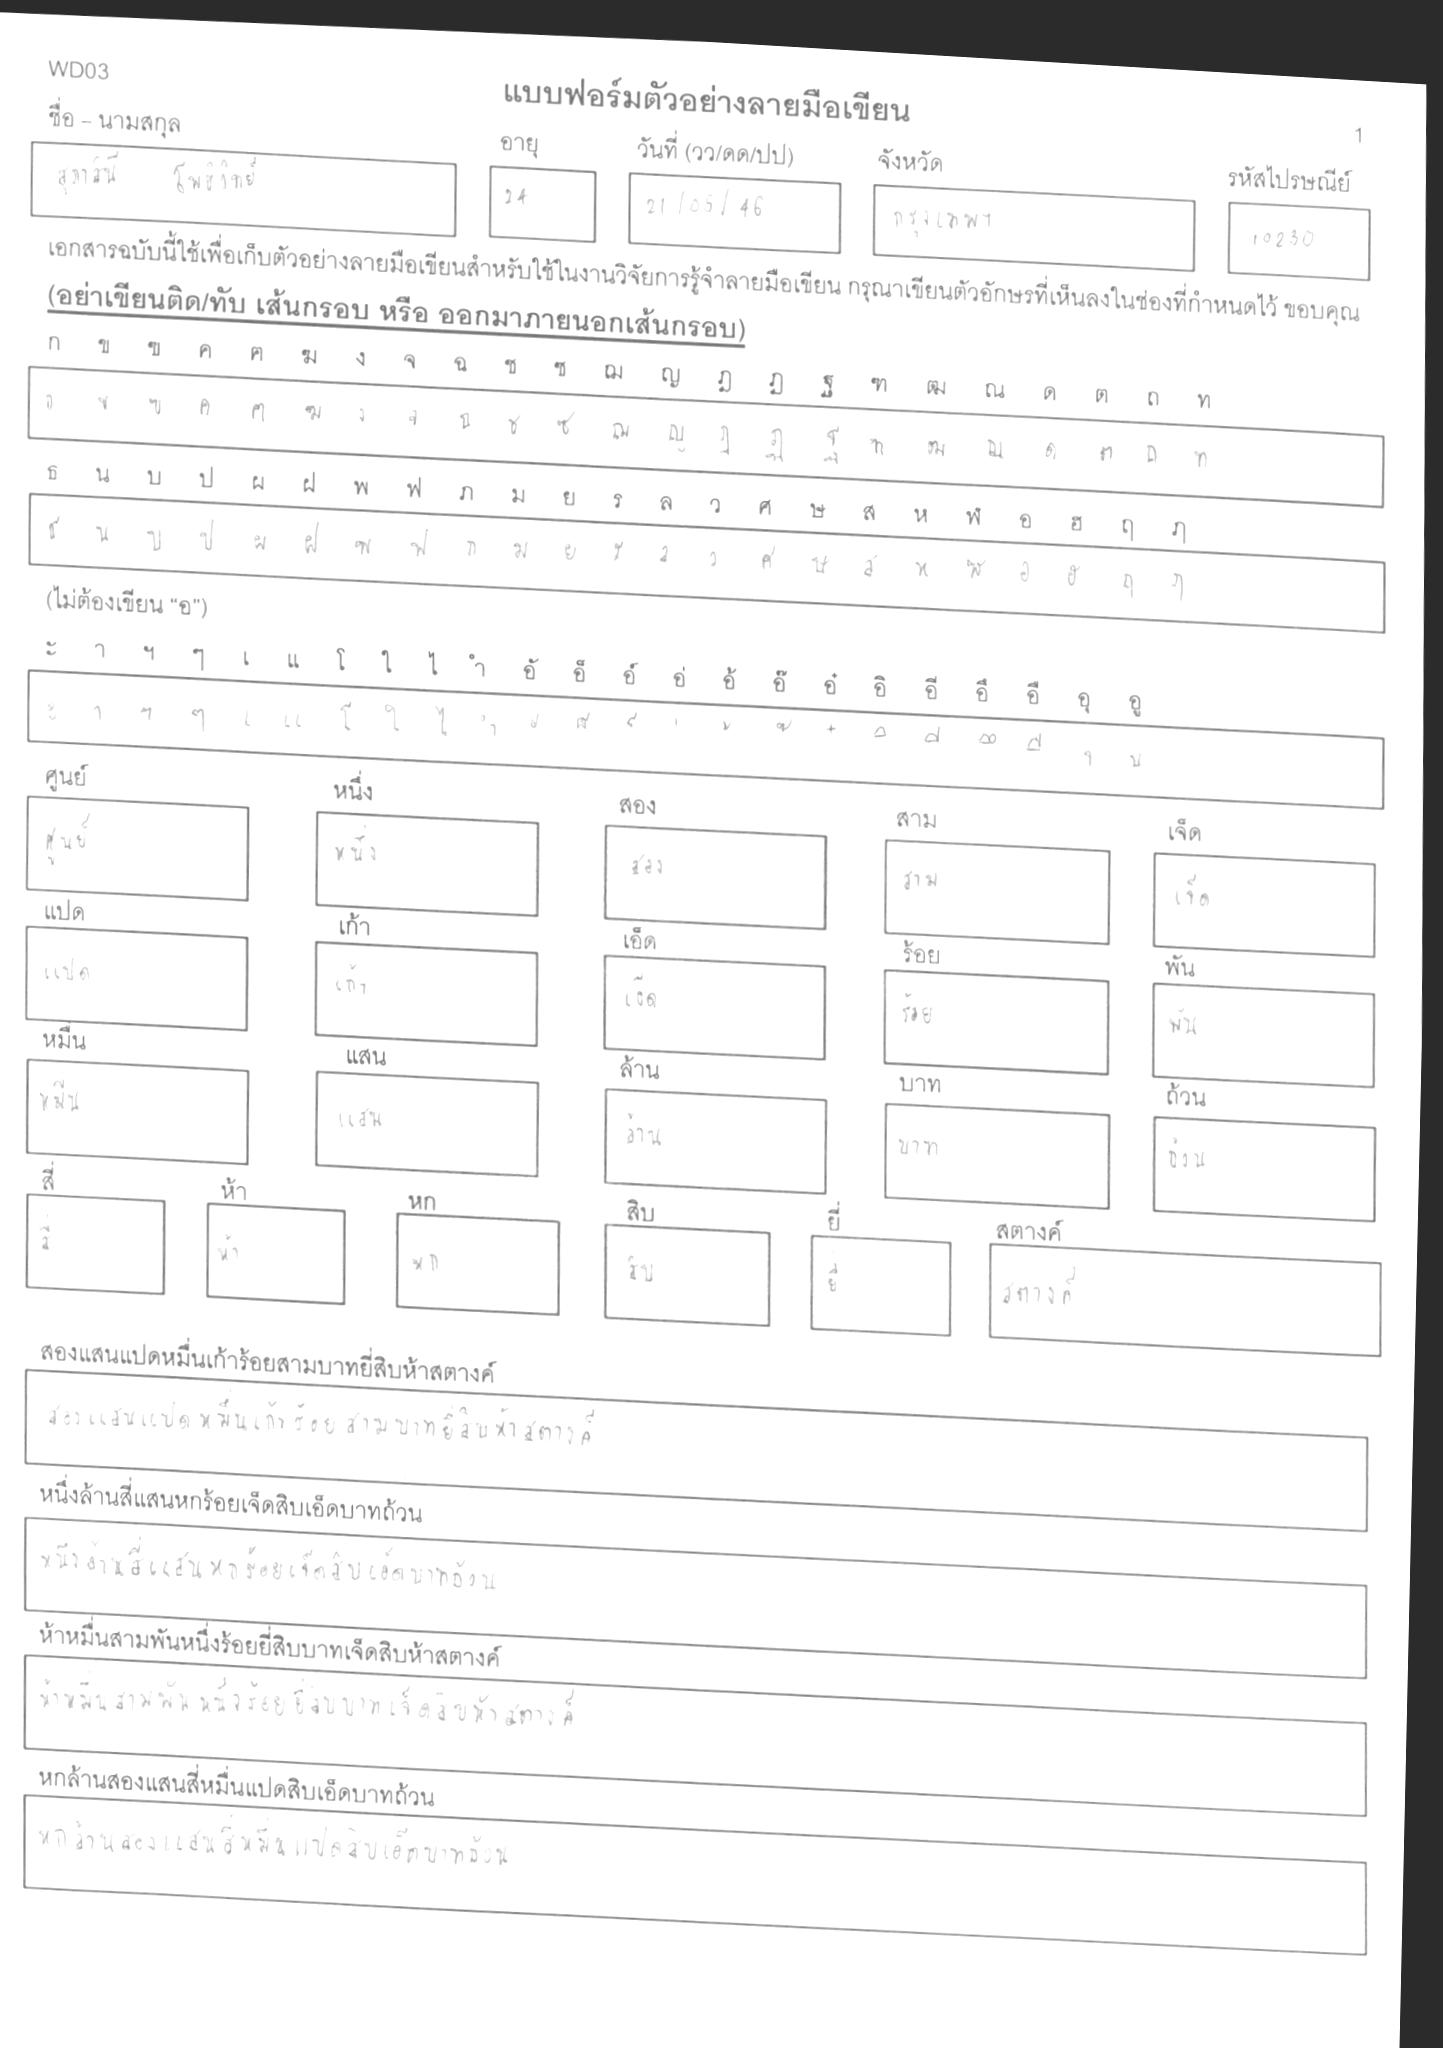 WD03
แบบฟอร์มตัวอย่างลายมือเขียน
1
ชื่อ – นามสกุล อายุ วันที่ (วว/ดด/ปป) จังหวัด รหัสไปรษณีย์
สุภาสินี โพธิวิทย์ 24 21/05/46 กรุงเทพฯ 10230
เอกสารฉบับนี้ใช้เพื่อเก็บตัวอย่างลายมือเขียนสำหรับใช้ในงานวิจัยการรู้จำลายมือเขียน กรุณาเขียนตัวอักษรที่เห็นลงในช่องที่กำหนดไว้ ขอบคุณ
(อย่าเขียนติด/ทับ เส้นกรอบ หรือ ออกมาภายนอกเส้นกรอบ)
ก ข ฃ ค ฅ ฆ ง จ ฉ ช ซ ฌ ญ ฎ ฏ ฐ ฑ ฒ ณ ด ต ถ ท
ก ข ฃ ค ฅ ฆ ง จ ฉ ช ซ ฌ ญ ฎ ฏ ฐ ฑ ฒ ณ ด ต ถ ท
ธ น บ ป ผ ฝ พ ฟ ภ ม ย ร ล ว ศ ษ ส ห ฬ อ ฮ ฤ ฦ
ธ น บ ป ผ ฝ พ ฟ ภ ม ย ร ล ว ศ ษ ส ห ฬ อ ฮ ฤ ฦ
(ไม่ต้องเขียน "อ")
ะ า ฯ ๆ เ แ โ ใ ไ ำ อั อ็ อ์ อ่ อ้ อ๊ อ๋ อิ อี อึ อื อุ อู
ะ า ฯ ๆ เ แ โ ใ ไ ำ ั ็ ์ ่ ้ ๊ ๋ ิ ี ึ ื ุ ู
ศูนย์ หนึ่ง สอง สาม เจ็ด
ศูนย์ หนึ่ง สอง สาม เจ็ด
แปด เก้า เอ็ด ร้อย พัน
แปด เก้า เอ็ด ร้อย พัน
หมื่น แสน ล้าน บาท ถ้วน
หมื่น แสน ล้าน บาท ถ้วน
สี่ ห้า หก สิบ ยี่ สตางค์
สี่ ห้า หก สิบ ยี่ สตางค์
สองแสนแปดหมื่นเก้าร้อยสามบาทยี่สิบห้าสตางค์
สองแสนแปดหมื่นเก้าร้อยสามบาทยี่สิบห้าสตางค์
หนึ่งล้านสี่แสนหกร้อยเจ็ดสิบเอ็ดบาทถ้วน
หนึ่งล้านสี่แสนหกร้อยเจ็ดสิบเอ็ดบาทถ้วน
ห้าหมื่นสามพันหนึ่งร้อยยี่สิบบาทเจ็ดสิบห้าสตางค์
ห้าหมื่นสามพันหนึ่งร้อยยี่สิบบาทเจ็ดสิบห้าสตางค์
หกล้านสองแสนสี่หมื่นแปดสิบเอ็ดบาทถ้วน
หกล้านสองแสนสี่หมื่นแปดสิบเอ็ดบาทถ้วน